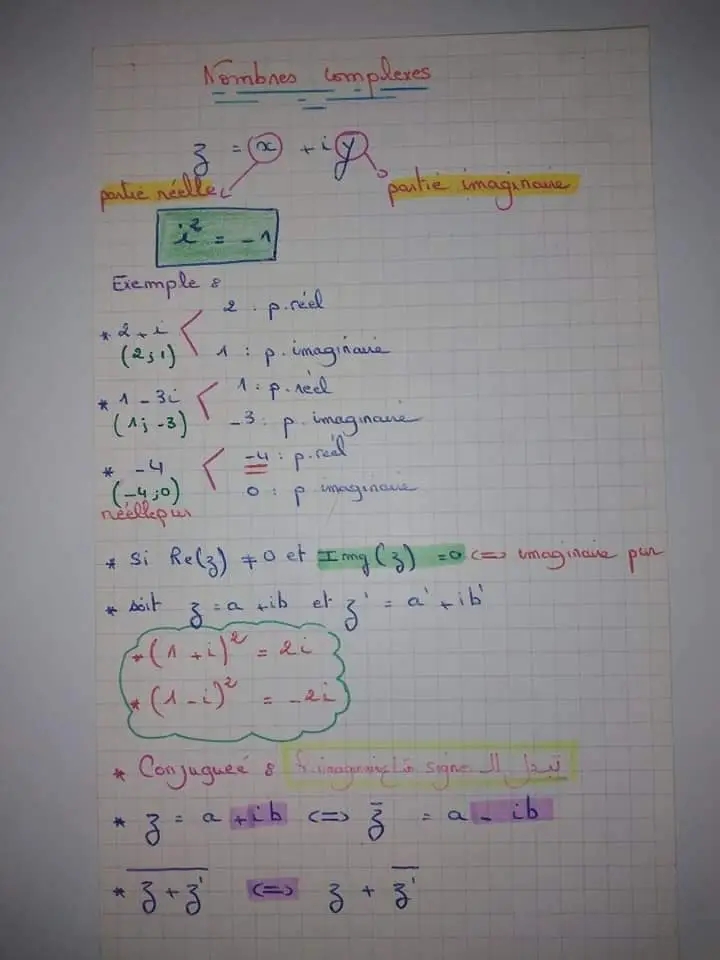 Nombres complexes
z = x + iy
partie réelle
partie imaginaire
i² = -1
Exemple :
* 2 + i
2 : p.réel
(2;1)
1 : p. imaginaire
* 1 - 3i
1 : p.réel
(1; -3)
-3 : p. imaginaire
* -4
-4 : p.réel
(-4;0)
0 : p imaginaire
réelle pur
* Si Re(z) ≠ 0 et Img(z) = 0 <=> imaginaire pur
* soit z = a + ib et z' = a' + ib'
* (1 + i)² = 2i
* (1 - i)² = -2i
* Conjugueé : تبدل الـ signe
* z = a + ib <=> z̅ = a - ib
* z + z'̅ <=> z + z̅'